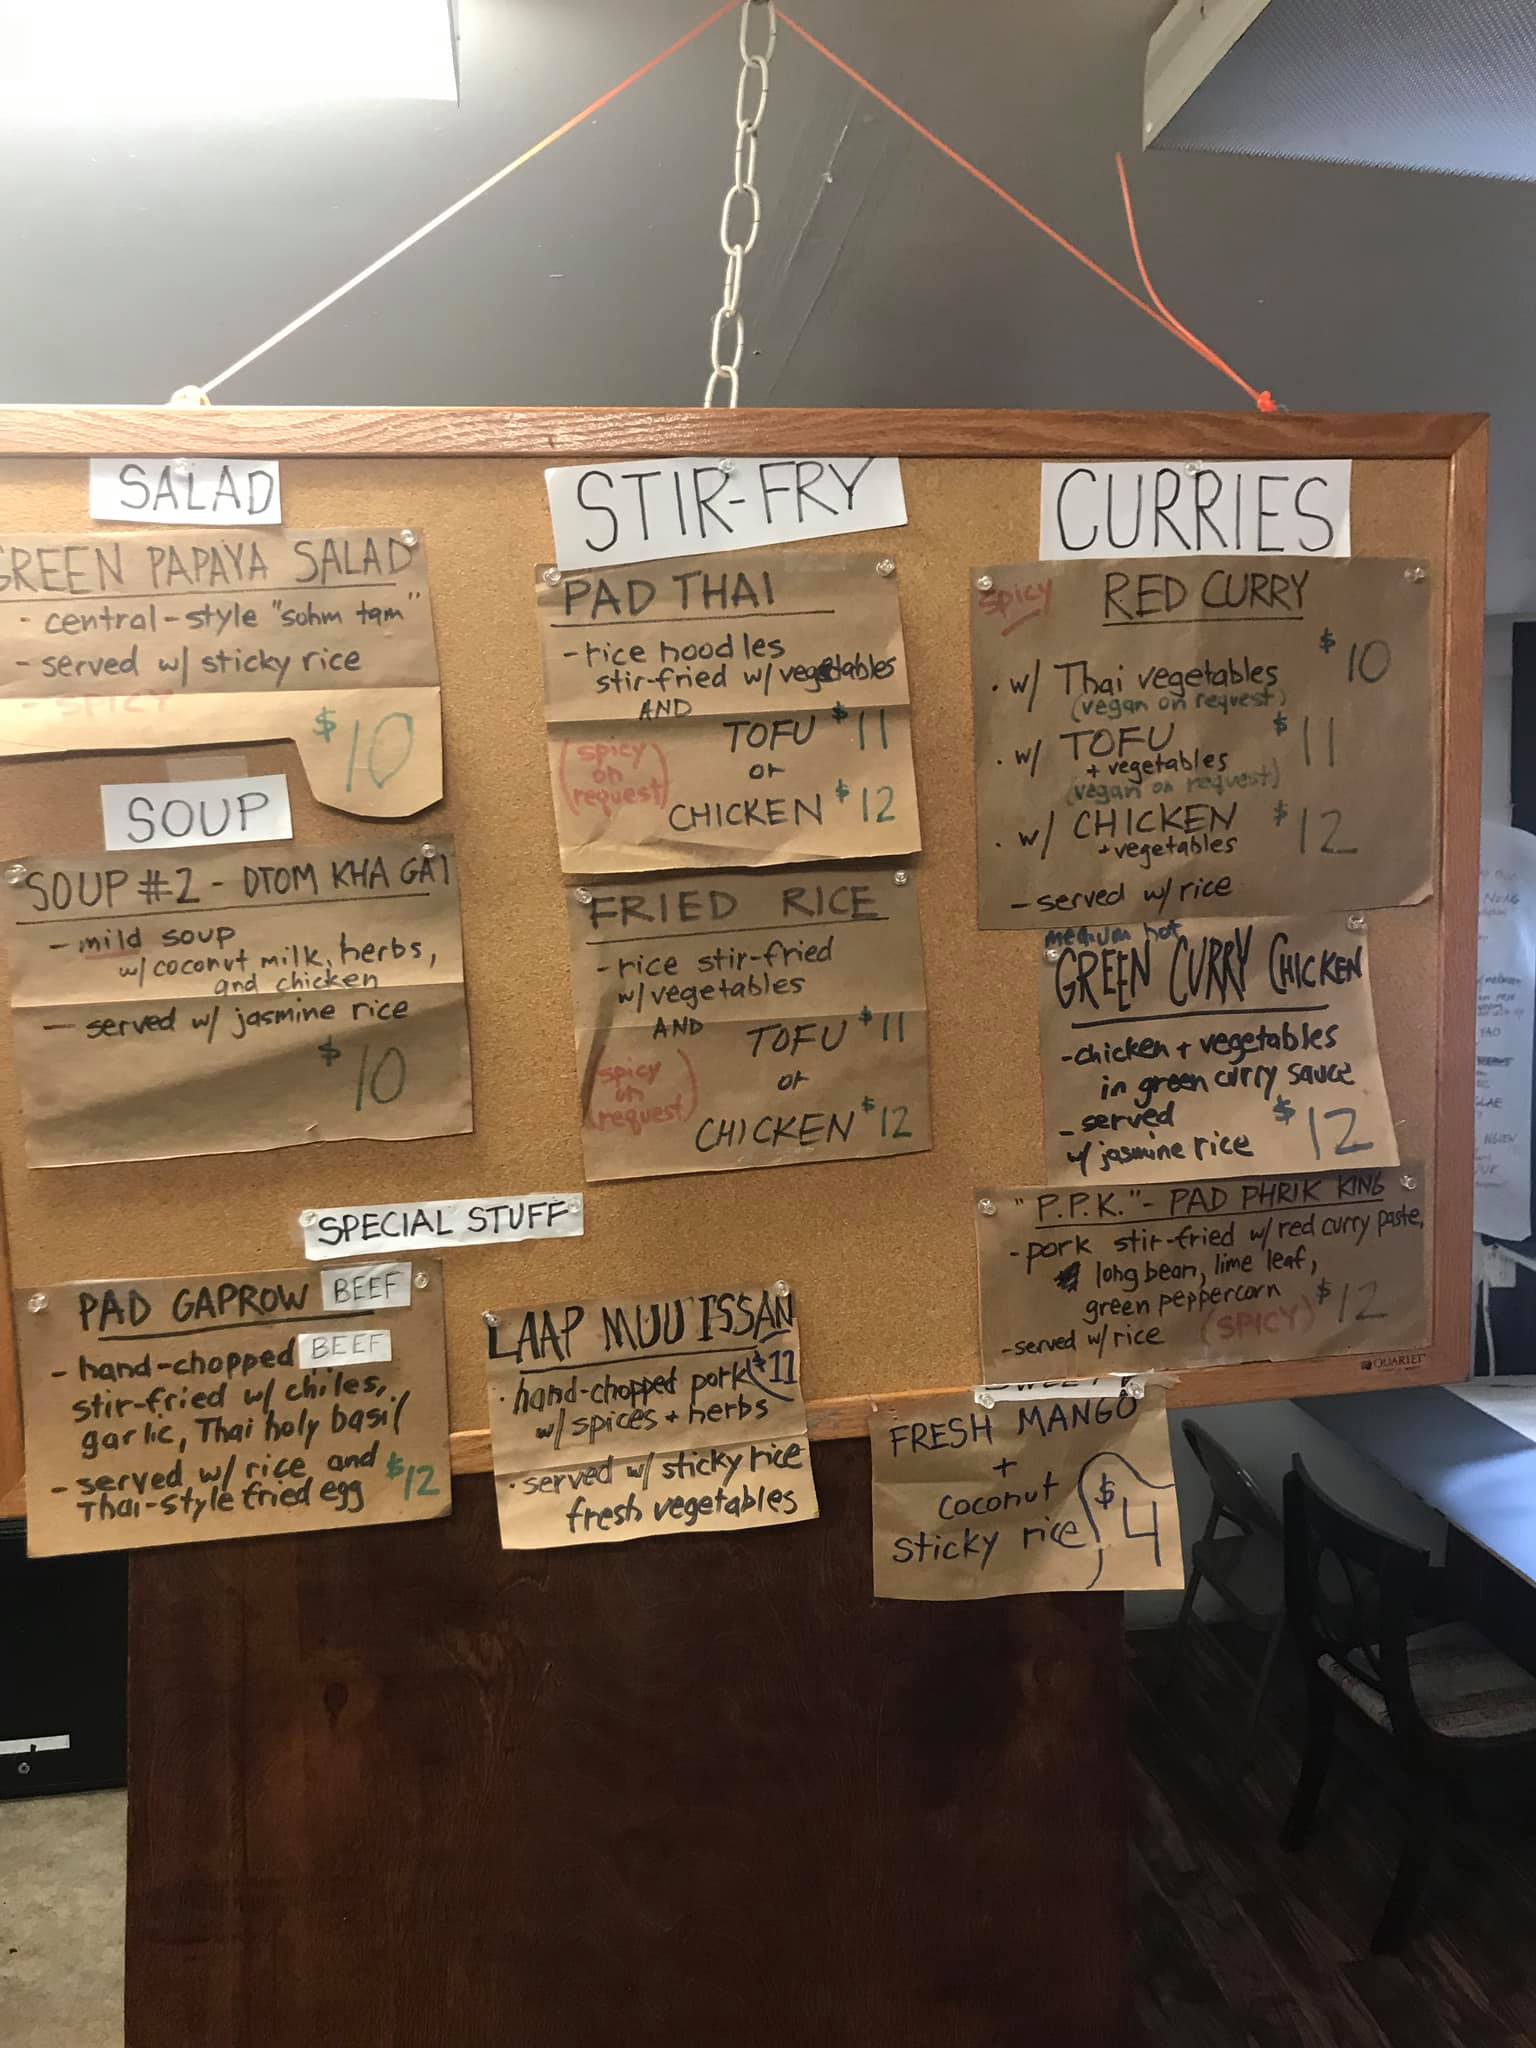 SALAD
GREEN PAPAYA SALAD
- central-style "sohm tam"
- served w/ sticky rice
- SPICY
$10
SOUP
SOUP #2 - DTOM KHA GAI
- mild soup
w/ coconut milk, herbs,
and chicken
- served w/ jasmine rice
$10
STIR-FRY
PAD THAI
- rice noodles
stir-fried w/ vegetables
AND
TOFU $11
or
CHICKEN $12
(spicy
on
request)
FRIED RICE
- rice stir-fried
w/ vegetables
AND
TOFU $11
or
CHICKEN $12
(spicy
on
request)
CURRIES
spicy
RED CURRY
• w/ Thai vegetables $10
(vegan on request)
• w/ TOFU $11
+ vegetables
(vegan on request)
• w/ CHICKEN $12
+ vegetables
- served w/ rice
medium hot
GREEN CURRY CHICKEN
- chicken + vegetables
in green curry sauce
- served
w/ jasmine rice $12
"P.P.K." - PAD PHRIK KING
- pork stir-fried w/ red curry paste,
long bean, lime leaf,
green peppercorn $12
- served w/ rice (SPICY)
QUARTET
SPECIAL STUFF
PAD GAPROW BEEF
- hand-chopped BEEF
stir-fried w/ chiles,
garlic, Thai holy basil
- served w/ rice and $12
Thai-style fried egg
LAAP MUU ISSAN
• hand-chopped pork $11
w/ spices + herbs
• served w/ sticky rice
fresh vegetables
FRESH MANGO
+
coconut
sticky rice $4